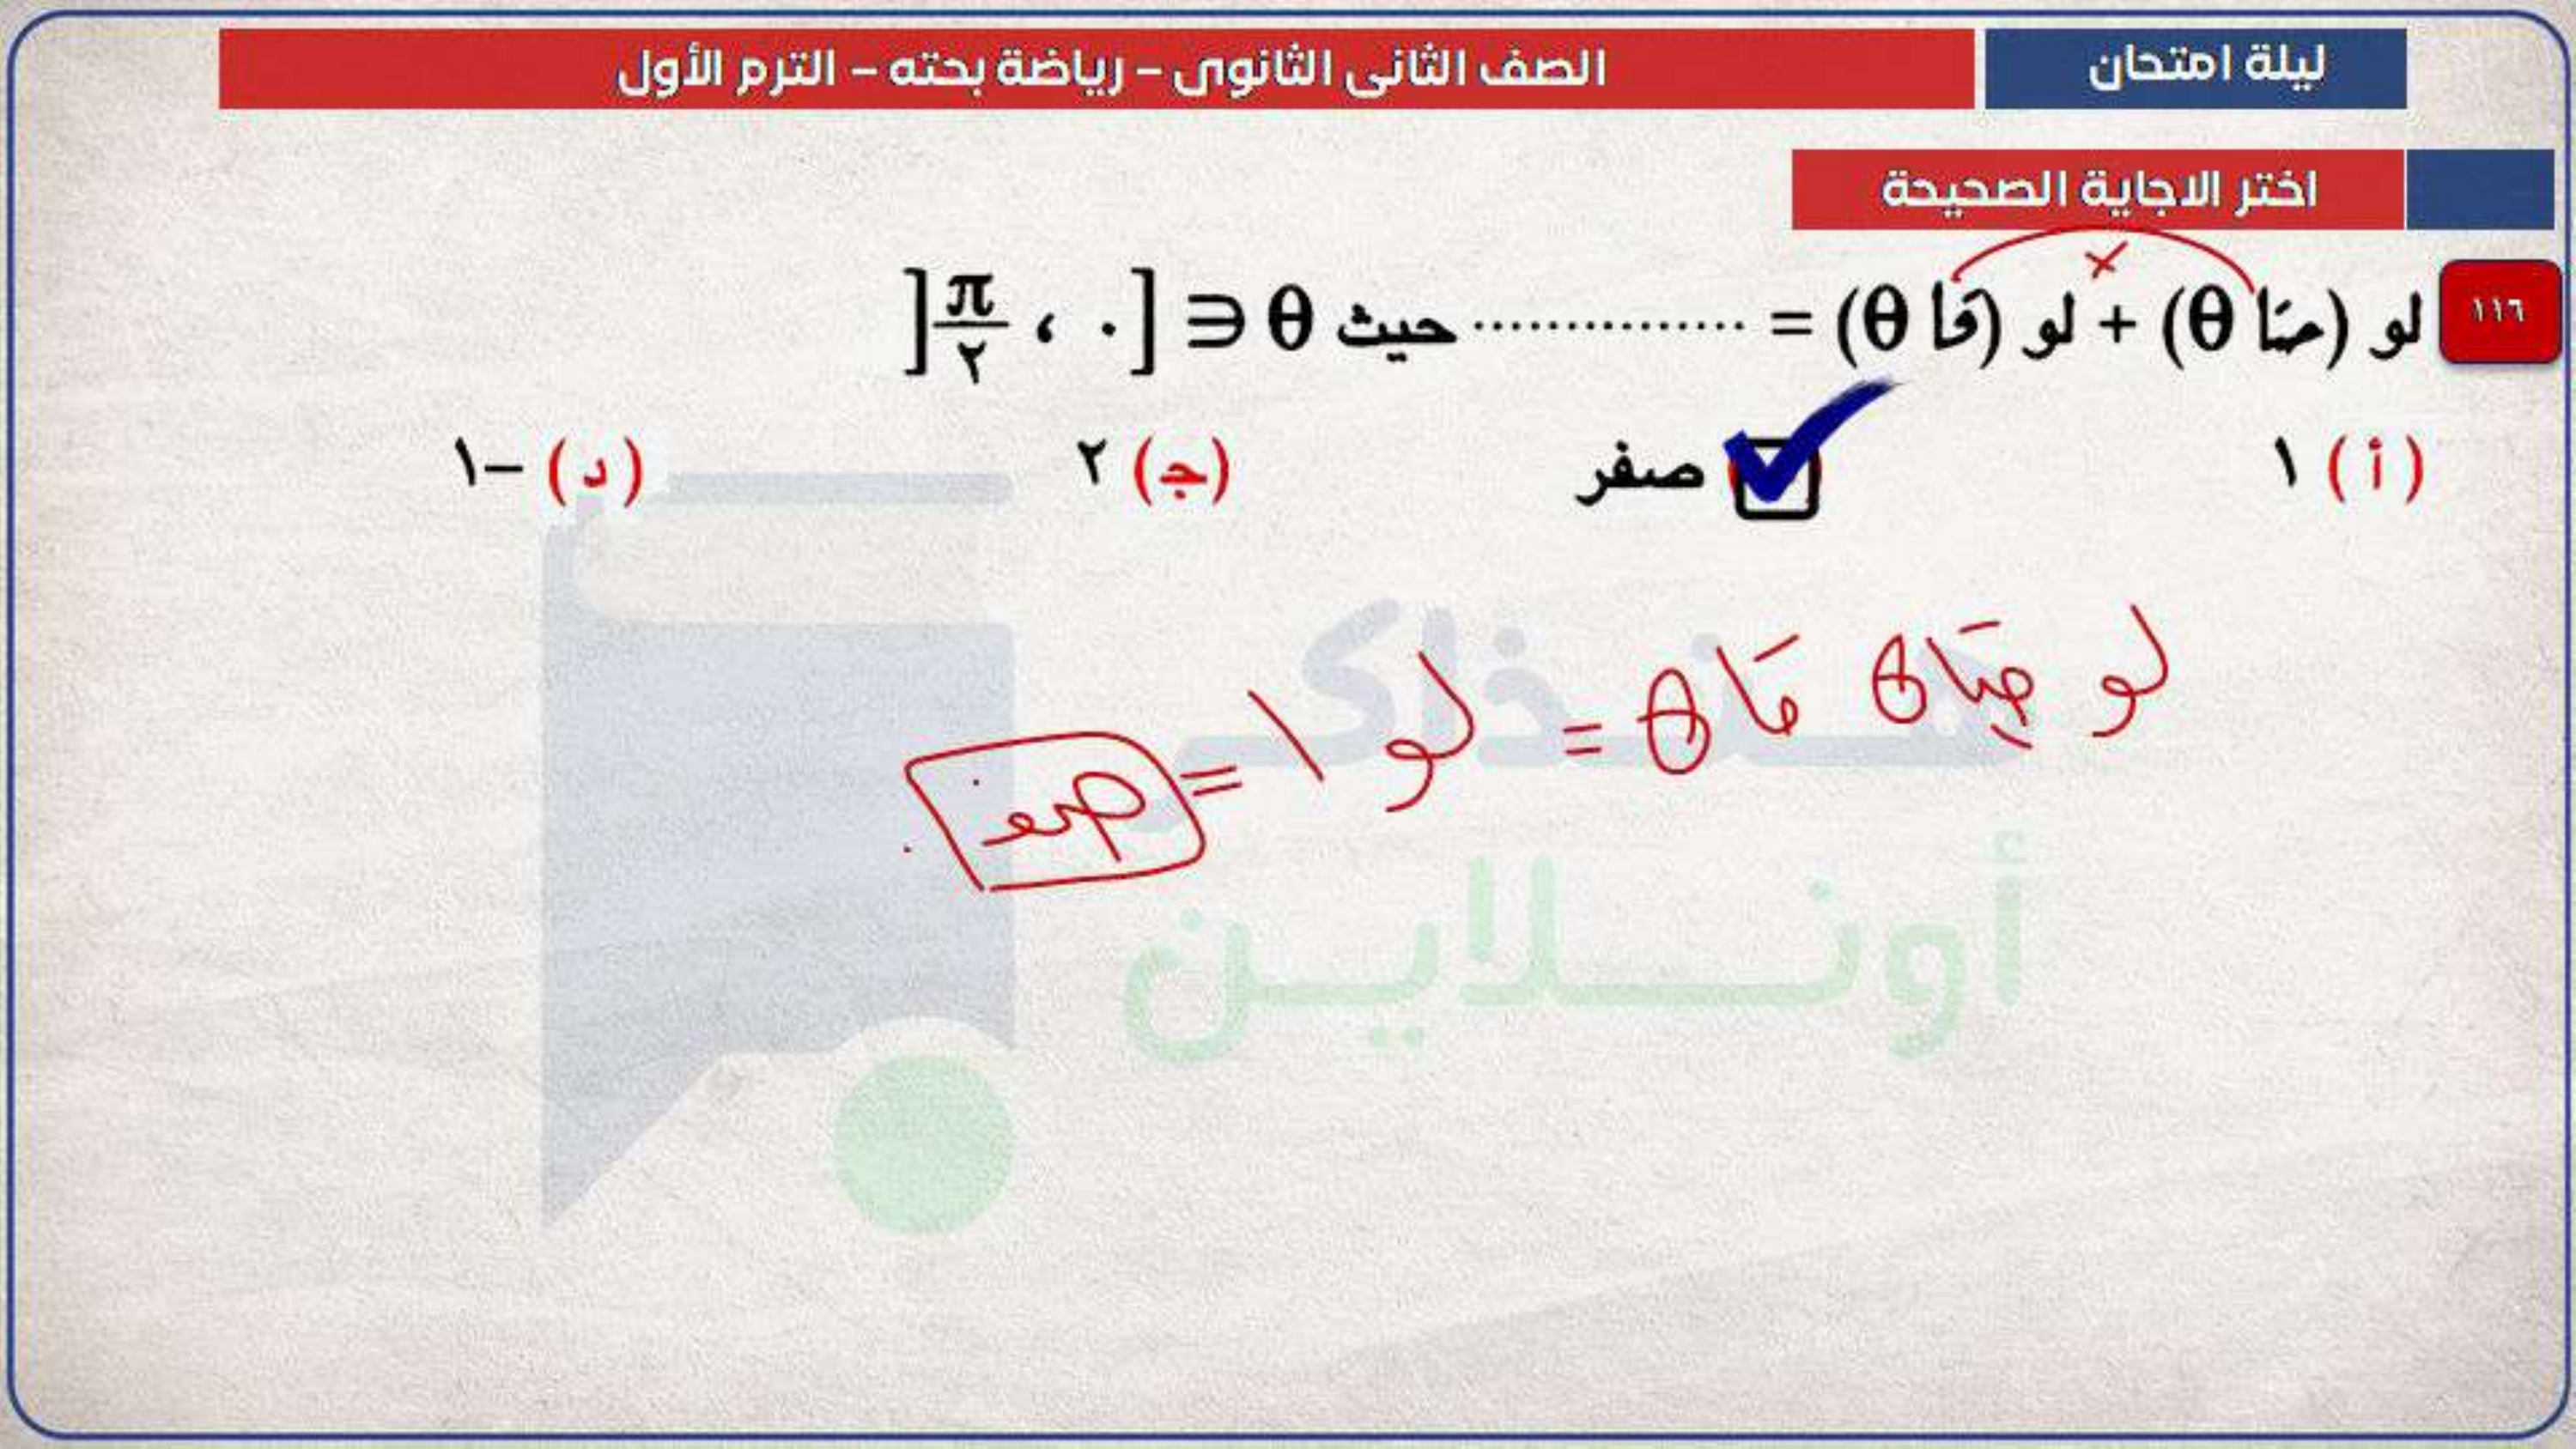 ليلة امتحان
الصف الثانى الثانوى – رياضة بحته – الترم الأول
اختر الاجاية الصحيحة
١١٦ لو (حتا θ) + لو (قا θ) = ............... حيث θ ∈ [٠ ، π/٢[
(أ) ١ صفر (ج) ٢ (د) –١
لو حتا θ قا θ = لو ١ = صفر
هنذاكر
أونلاين